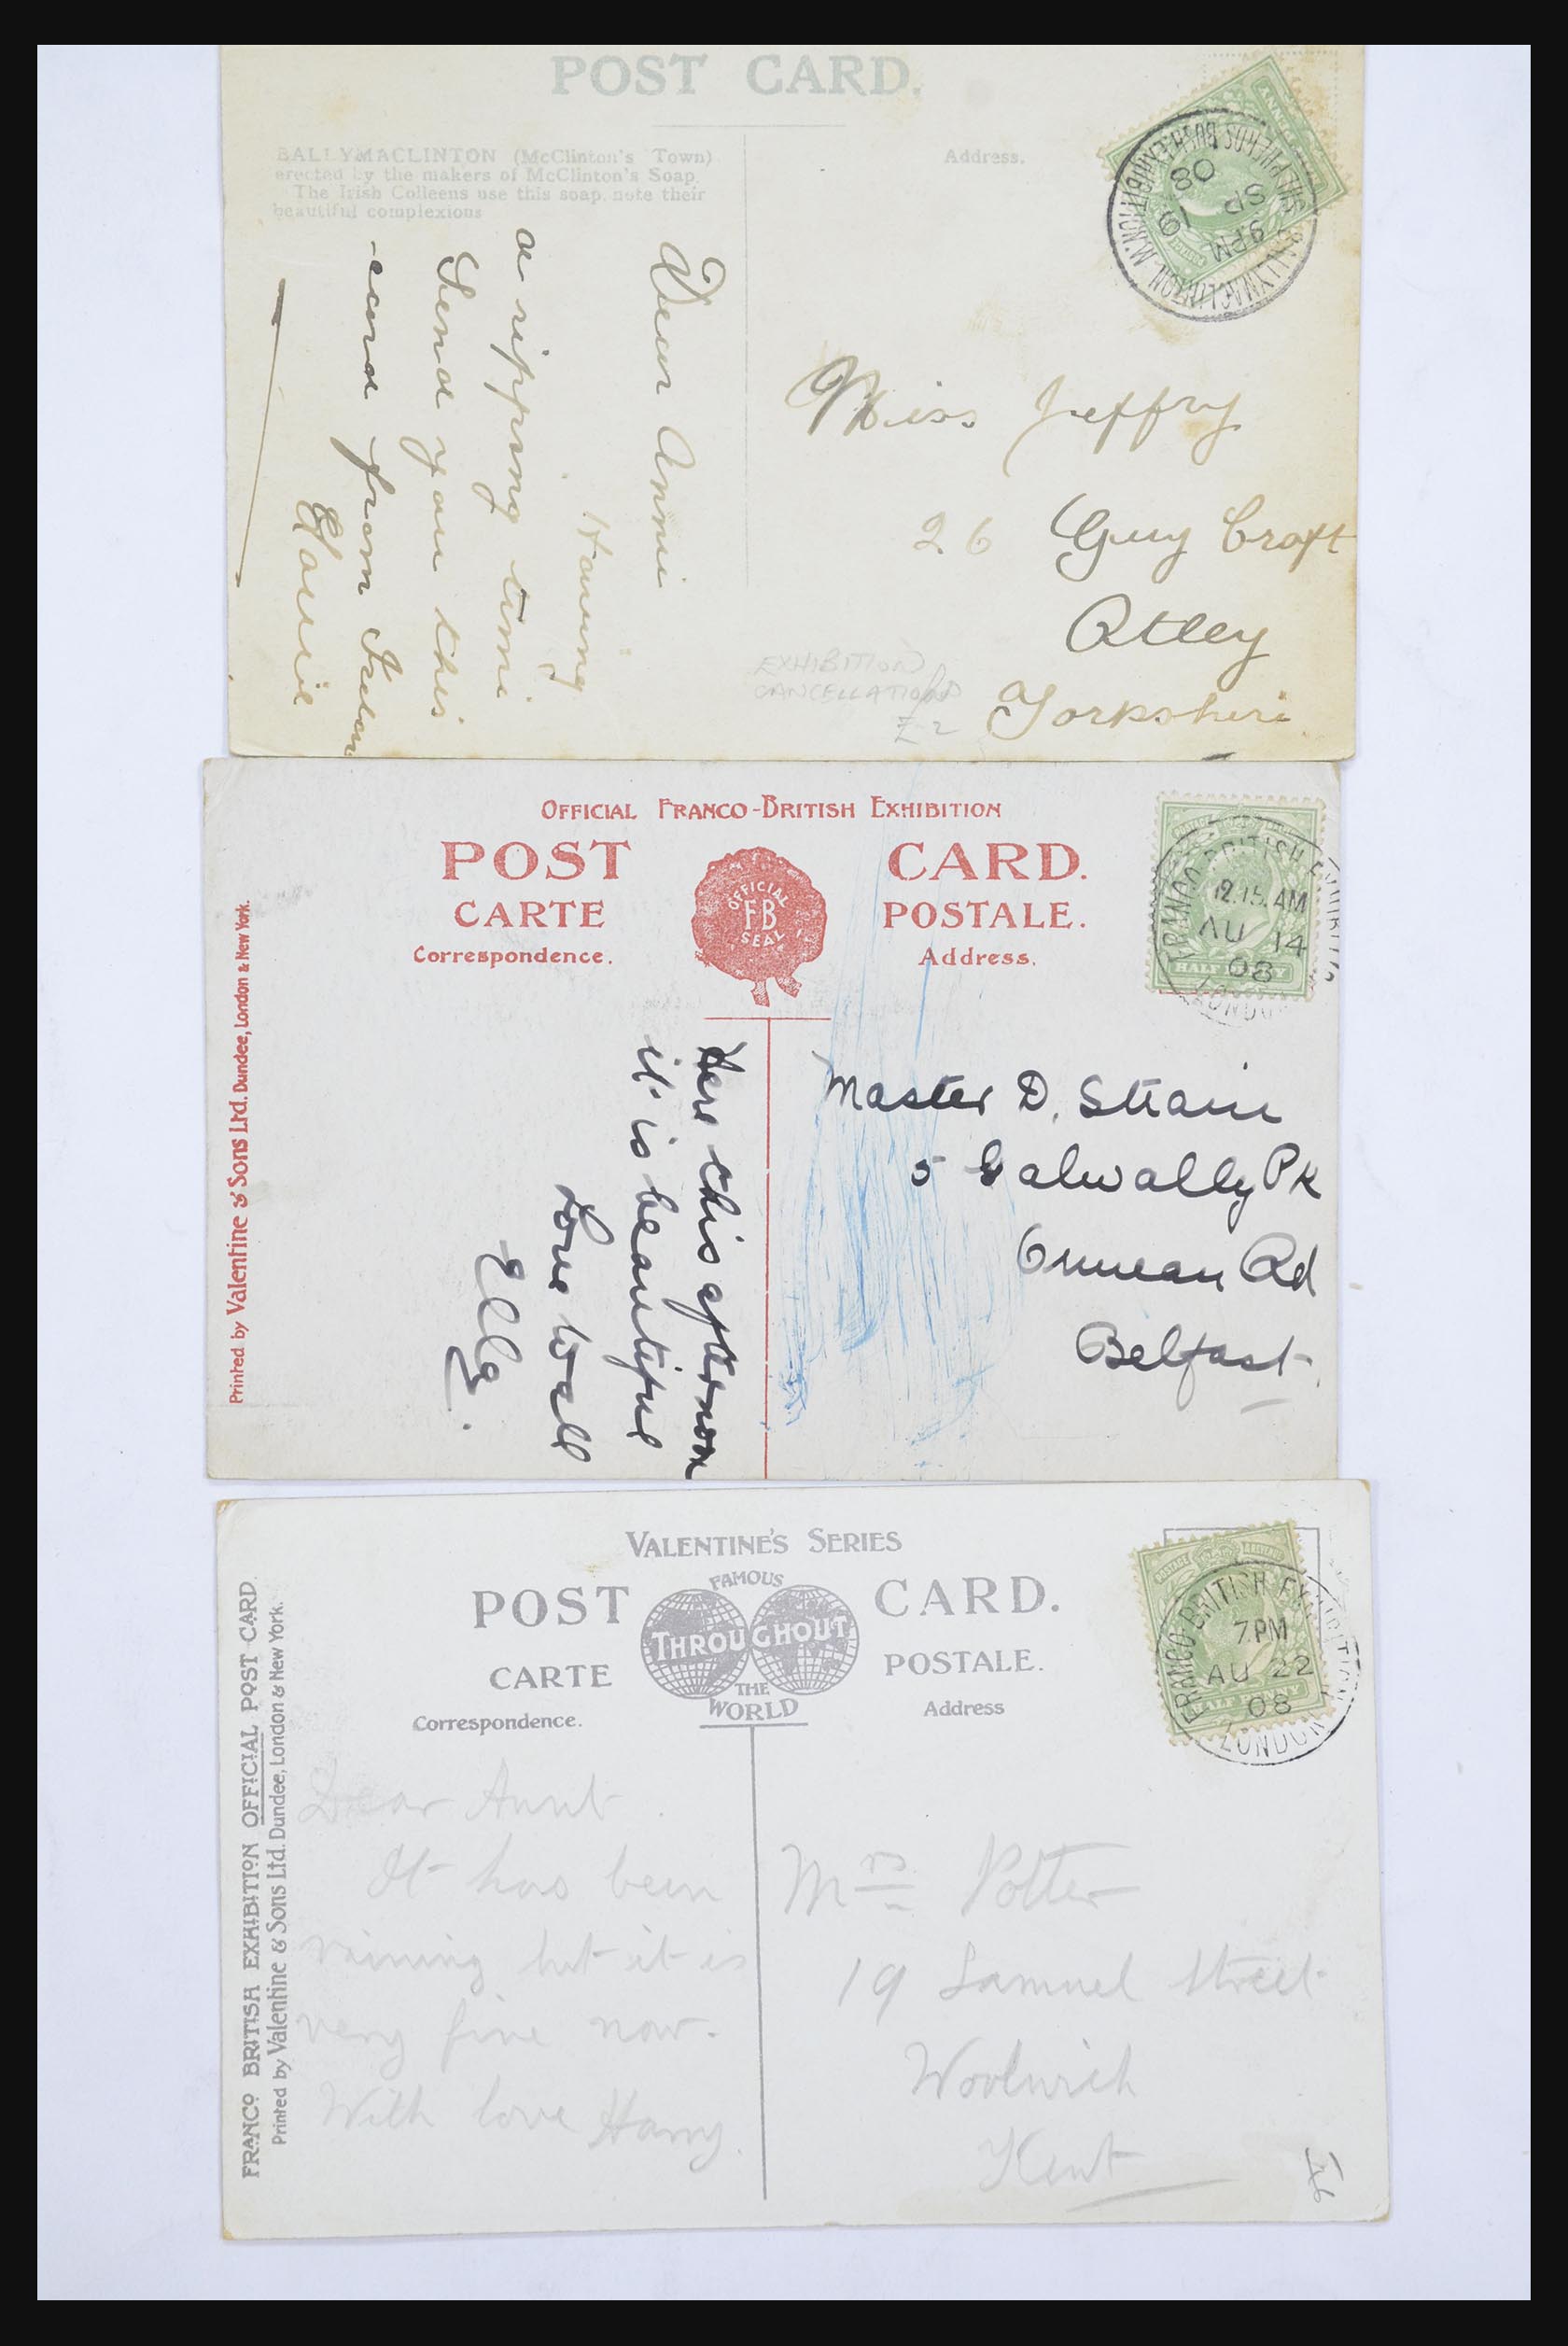 POST CARD.
BALLYMACLINTON (McClinton's Town)
erected by the makers of McClinton's Soap.
The Irish Colleens use this soap, note their
beautiful complexions
Address.
9 PM
SP 19
08
Dear Annie
Having
a ripping time
Send you this
card from Irelan
Miss Jeffry
26 Guy Croft
Otley
Yorkshire
EXHIBITION
CANCELLATIONS
£2
OFFICIAL FRANCO-BRITISH EXHIBITION
POST CARD.
CARTE POSTALE.
Correspondence. Address.
OFFICIAL
FB
SEAL
Printed by Valentine & Sons Ltd. Dundee, London & New York.
FRANCO BRITISH EXHIBITION
12.15. AM
AU 14
08
LONDON
HALF PENNY
Here this afternoon
it is beautiful
Love to all
Ella.
Master D. Strain
5 Galwally Pk
Ormeau Rd
Belfast.
VALENTINE'S SERIES
POST CARD.
FAMOUS
THROUGHOUT
THE
WORLD
CARTE POSTALE.
Correspondence. Address
FRANCO BRITISH EXHIBITION OFFICIAL POST CARD.
Printed by Valentine & Sons Ltd. Dundee, London & New York.
POSTAGE
FRANCO-BRITISH EXHIBITION
7. PM
AU 22
08
LONDON
HALF PENNY
Dear Aunt.
It has been
raining but it is
very fine now.
With love Harry.
Mrs Potter
19 Samuel Street
Woolwich
Kent